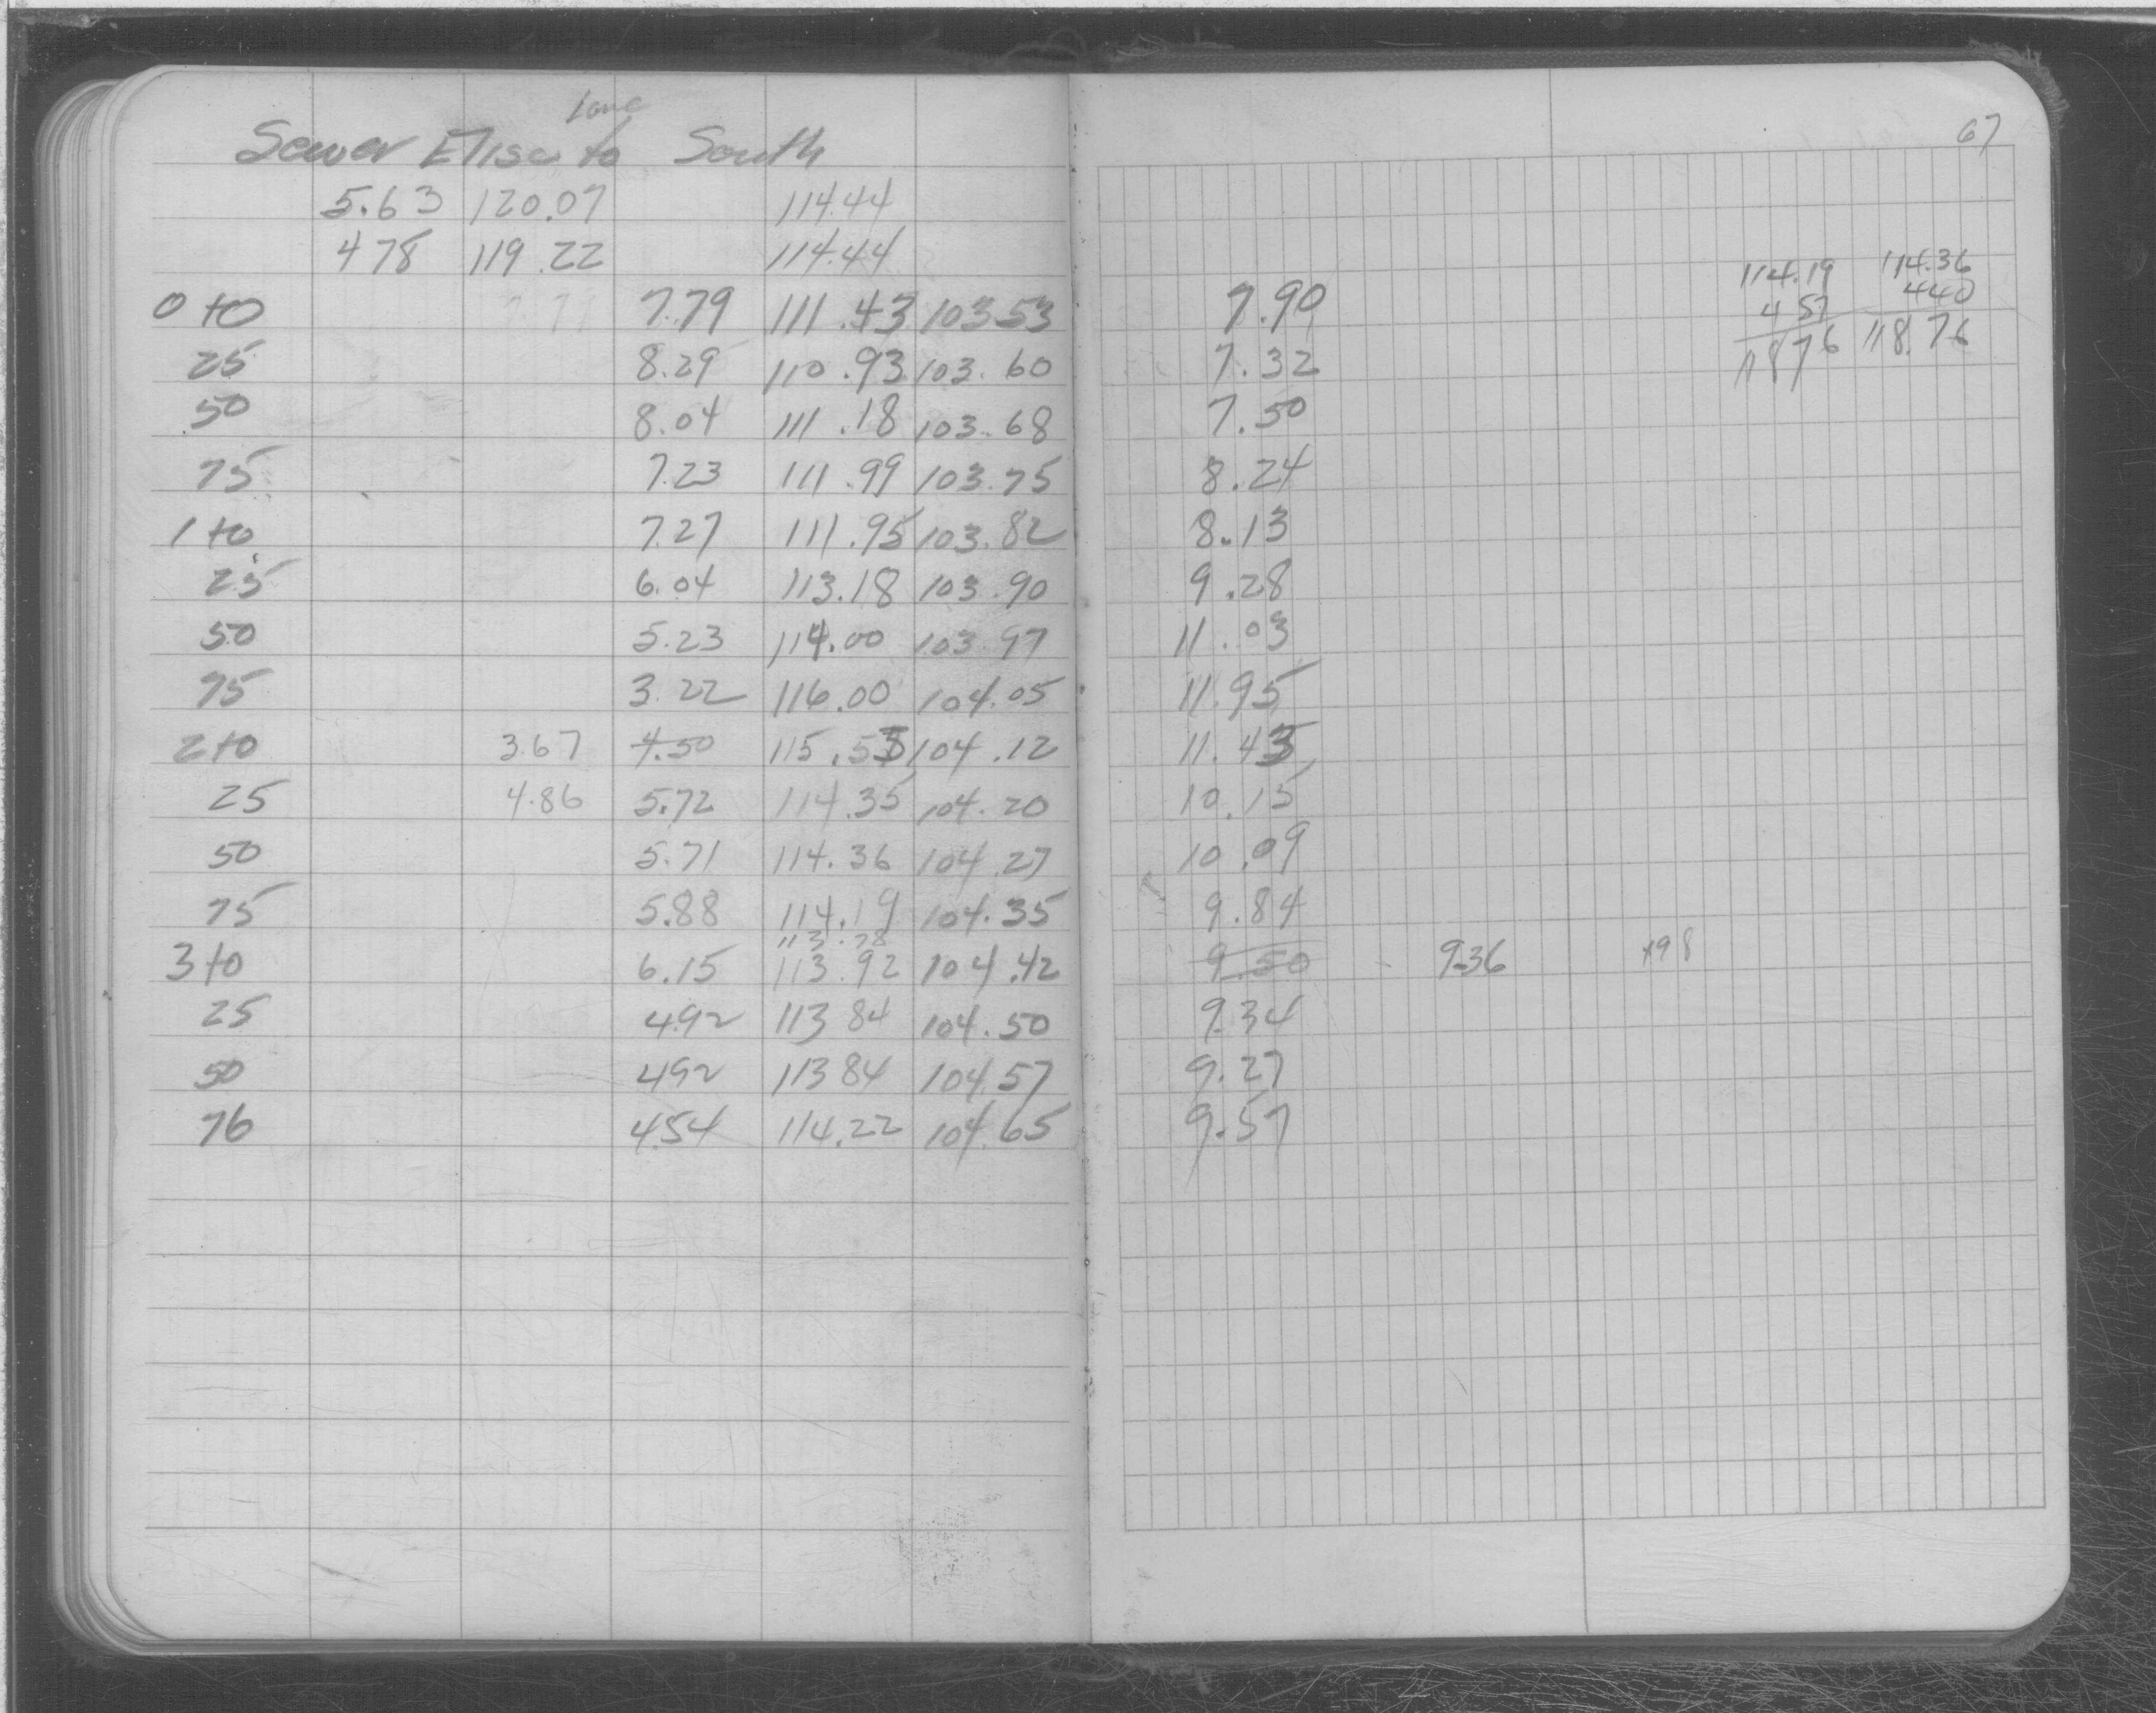 Lane
Sewer Elise to South
5.63 120.07 114.44
4 78 119.22 114.44
0+0 7.79 111.43 103.53 7.90 114.19 114.36
4 57 440
25 8.29 110.93 103.60 7.32 118 76 118.76
50 8.04 111.18 103.68 7.50
75 7.23 111.99 103.75 8.24
1+0 7.27 111.95 103.82 8.13
25 6.04 113.18 103.90 9.28
50 5.23 114.00 103.97 11.03
75 3.22 116.00 104.05 11.95
2+0 3.67 4.50 115.55 104.12 11.43
25 4.86 5.72 114.35 104.20 10.15
50 5.71 114.36 104.27 10.09
75 5.88 114.19 104.35 9.84
113.78
3+0 6.15 113.92 104.42 9.50 - 9.36 498
25 492 113 84 104.50 9.34
50 492 113 84 104.57 9.27
76 454 114.22 104.65 9.57
67